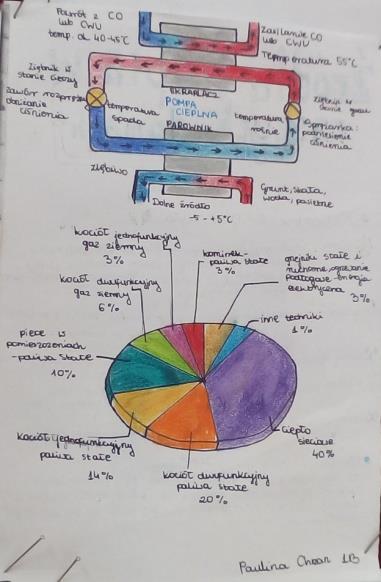 Powrót z CO
lub CWU
temp. ok. 40-45°C
Zasilanie CO
lub CWU
Temperatura 55°C
Ziębnik w
stanie cieczy
SKRAPLACZ
POMPA
CIEPLNA
PAROWNIK
Zawór rozprężny
obniżanie
ciśnienia
temperatura
spada
temperatura
rośnie
Ziębnik w
stanie
Sprężarka:
podniesienie
ciśnienia
Dolne źródło
-5 - +5°C
Grunt, skała,
woda,
kocioł jednofunkcyjny
gaz ziemny
3%
kominek-
paliwa stałe
3%
grzejniki stałe i
ruchome, ogrzewanie
podłogowe - energia
elektryczna
3%
kocioł dwufunkcyjny
gaz ziemny
6%
inne techniki
1%
piece w
pomieszczeniach
- paliwa stałe
10%
ciepło
sieciowe
40%
kocioł jednofunkcyjny
paliwa stałe
14%
kocioł dwufunkcyjny
paliwa stałe
20%
Paulina 1B